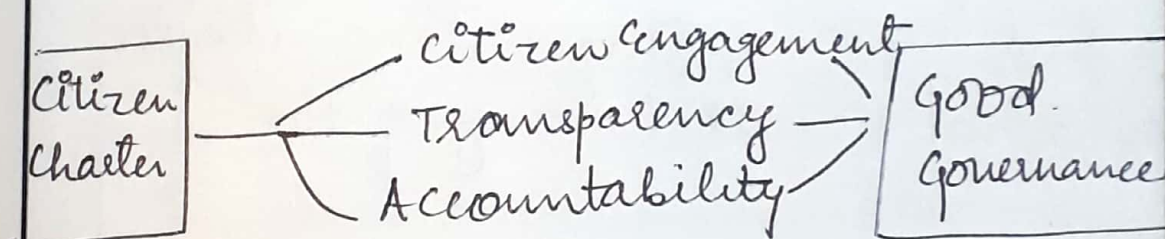 Citizen
Charter
Citizen engagement
Transparency
Accountability
Good
Governance